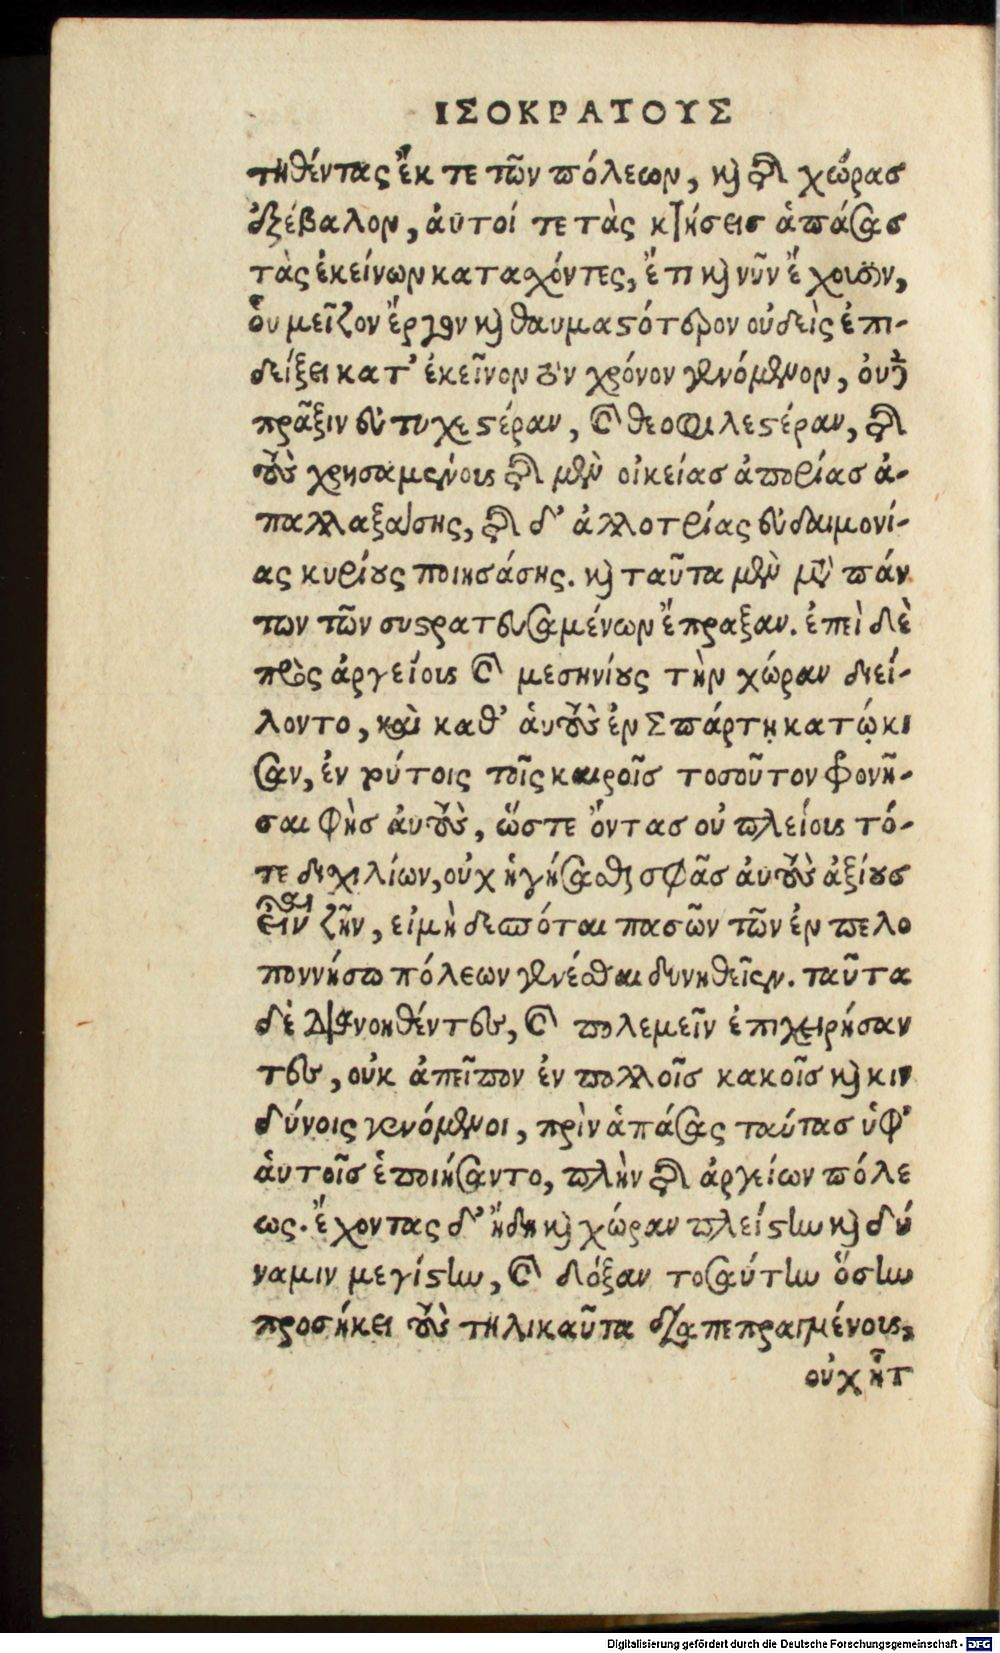 ΙΣΟΚΡΑΤΟΥΣ
τηθέντας ἔκ τε τῶν πόλεων, καὶ τῆς χώρας
ἐξέβαλον, ἀυτοί τε τὰς κτήσεις ἁπάσας
τὰς ἐκείνων κατασχόντες, ἔτι καὶ νῦν ἔχουσιν,
ὧν μεῖζον ἔργον καὶ θαυμαστότερον οὐδεὶς ἐπι-
δείξει κατ' ἐκεῖνον τὸν χρόνον γενόμενον, οὐδὲ
πρᾶξιν εὐτυχεστέραν, καὶ θεοφιλεστέραν, τῆς
τοὺς χρησαμένους τῆς μὲν οἰκείας ἀπορίας ἀ-
παλλαξάσης, τῆς δ' ἀλλοτρίας εὐδαιμονί-
ας κυρίους ποιησάσης. καὶ ταῦτα μὲν μετὰ πάν
των τῶν συστρατευσαμένων ἔπραξαν. ἐπεὶ δὲ
πρὸς ἀργείους καὶ μεσηνίους τὴν χώραν διεί-
λοντο, καὶ καθ' ἁυτοὺς ἐν Σπάρτῃ κατῴκι
σαν, ἐν τούτοις τοῖς καιροῖς τοσοῦτον φρονῆ-
σαι φὴς ἀυτοὺς, ὥστε ὄντας οὐ πλείους τό-
τε δισχιλίων, οὐχ ἡγήσασθαι σφᾶς ἀυτοὺς ἀξίους
εἶναι ζῆν, εἰ μὴ δεσπόται πασῶν τῶν ἐν πελο
ποννήσῳ πόλεων γενέσθαι δυνηθεῖεν. ταῦτα
δὲ διανοηθέντες, καὶ πολεμεῖν ἐπιχειρήσαν
τες, οὐκ ἀπεῖπον ἐν πολλοῖς κακοῖς καὶ κιν
δύνοις γενόμενοι, πρὶν ἁπάσας ταύτας ὑφ'
ἁυτοῖς ἐποιήσαντο, πλὴν τῆς ἀργείων πόλε
ως. ἔχοντας δ' ἤδη καὶ χώραν πλείστην καὶ δύ
ναμιν μεγίστην, καὶ δόξαν τοσαύτην ὅσην
προσήκει τοὺς τηλικαῦτα διαπεπραγμένους,
οὐχ ἧτ
Digitalisierung gefördert durch die Deutsche Forschungsgemeinschaft - DFG